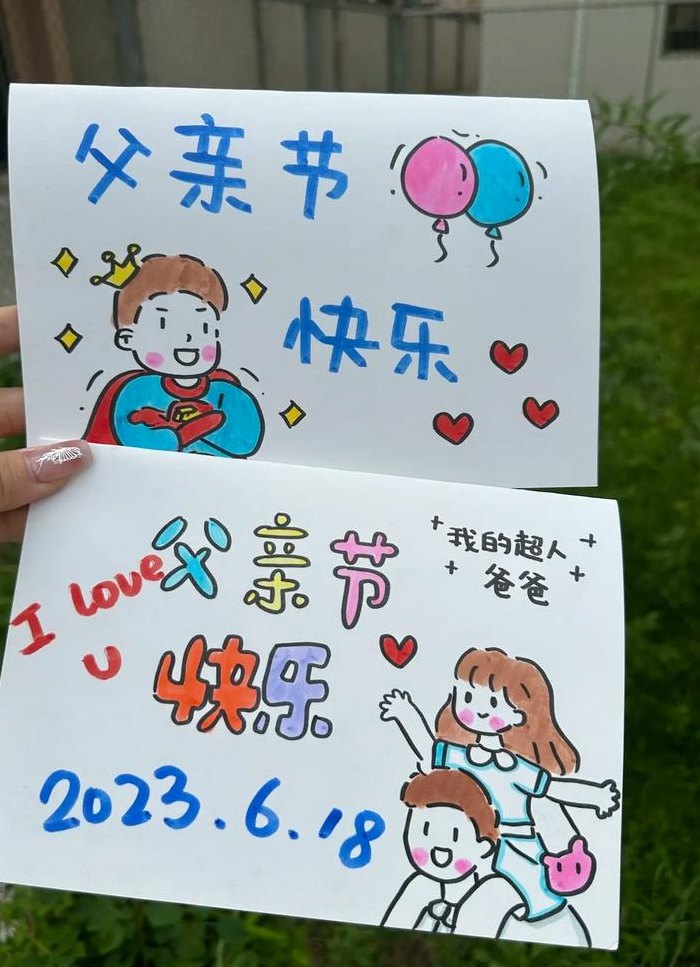 父亲节
快乐
父亲节
我的超人
爸爸
I love
u
快乐
2023.6.18